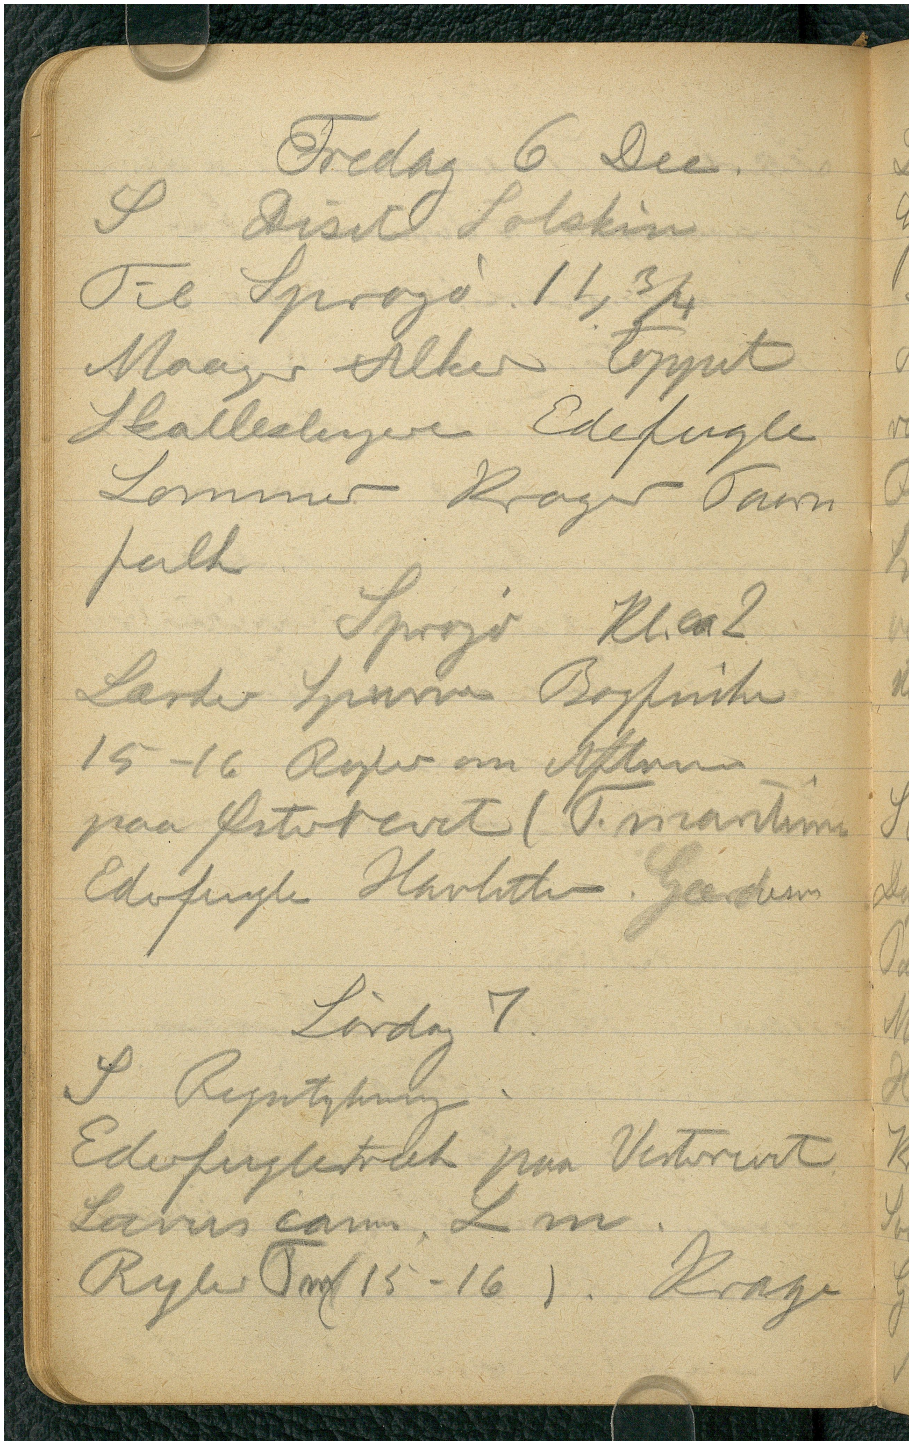 Fredag 6 Dec.
S Diset Solskin
Til Sprogø 11, 3/4
Maager Alker Toppet
Skallesluger Ederfugle
Lommer Krager Taarn
falk
Sprogø Kl. ca 2
Lærker Spurve Bogfinke
15-16 Ryler om Aftenen
paa Østerrevet (T. maritima
Ederfugle Havlitter.
Lørdag 7.
S Regntykning.
Ederfugletræk paa Vesterrevet.
Larus canus, L m.
Ryler Tm (15-16). Krage